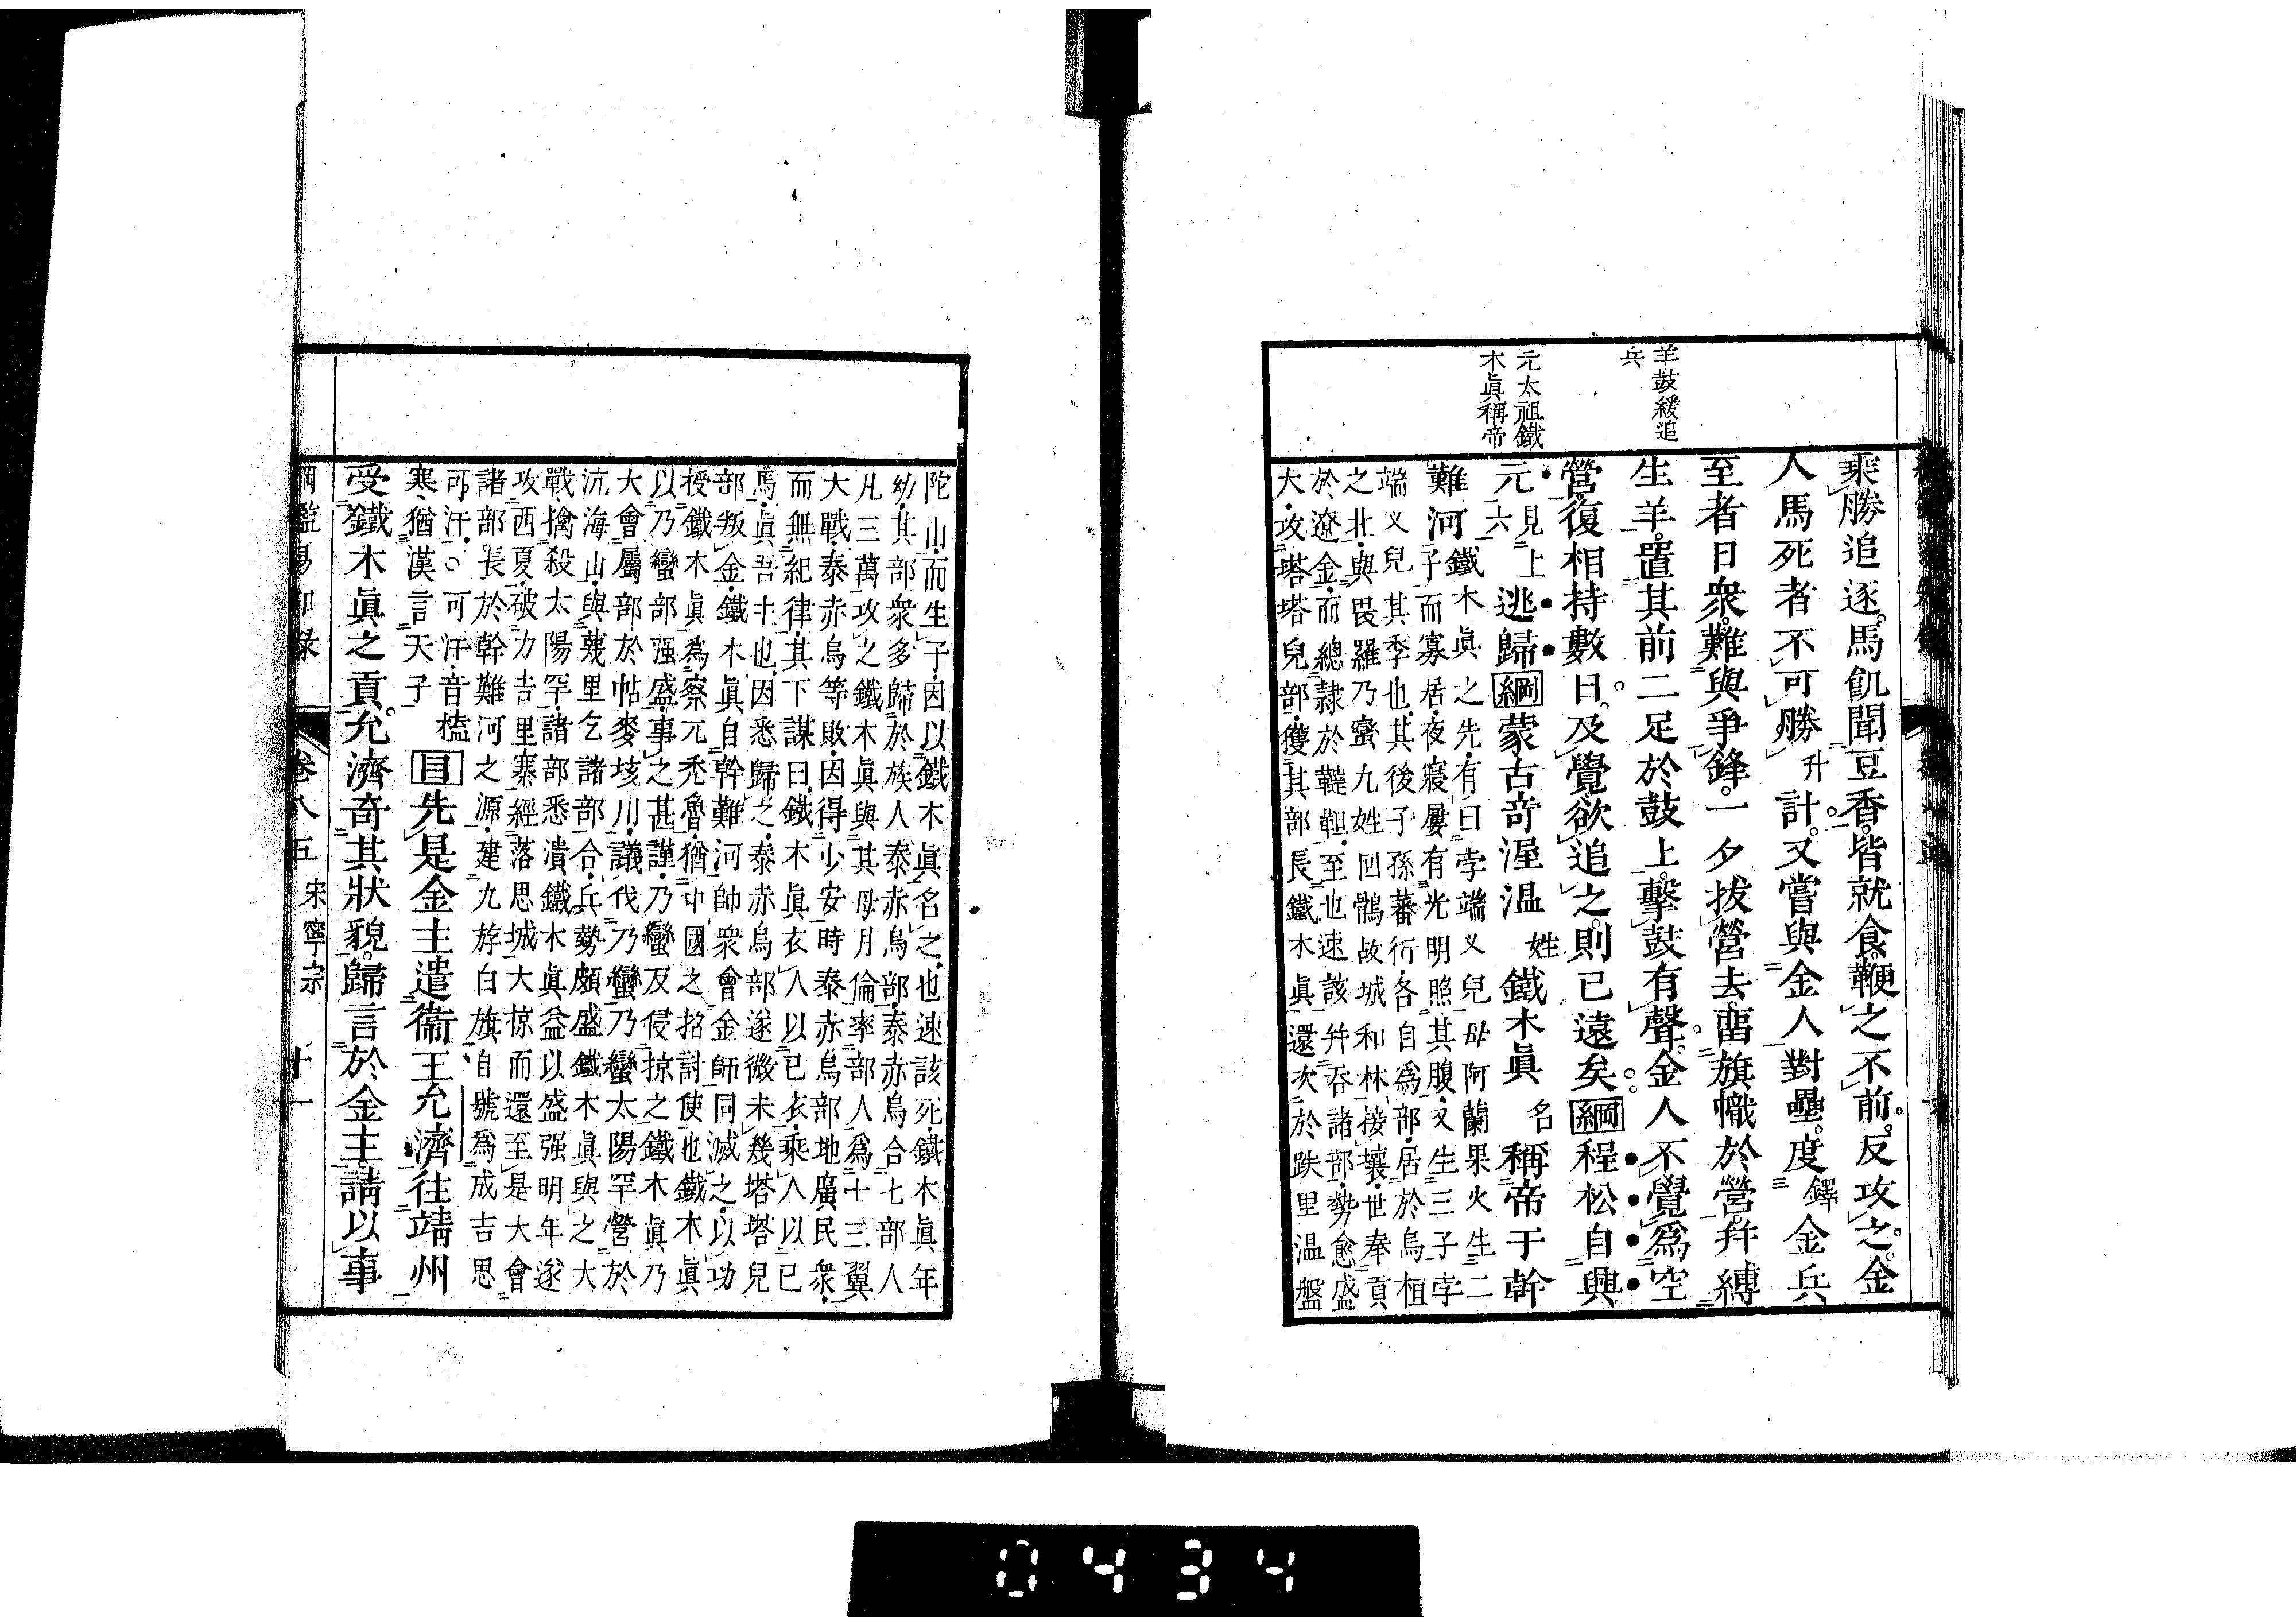 羊鼓緩追
兵
元太祖鐵
木眞稱帝
乘勝追逐。馬飢聞豆香。皆就食。鞭之不前。反攻之。金
人馬死者不可勝升計。又嘗與金人對壘。度鐸金兵
至者日衆。難與爭鋒。一夕拔營去。畱旗幟於營。幷縛
生羊。置其前二足於鼓上。擊鼓有聲。金人不覺爲空
營。復相持數日。及覺欲追之。則已遠矣。綱程松自興
元見上六逃歸綱蒙古奇渥温姓鐵木眞名稱帝于幹
難河鐵木眞之先有曰孛端义兒母阿蘭果火生二
子而寡居夜寢屢有光明照其腹又生三子孛
端义兒其季也其後子孫蕃衍各自爲部居於烏桓
之北與畏羅乃蠻九姓回鶻故城和林接壤世奉貢
於遼金而總隷於韃靼至也速該幷吞諸部勢愈盛
大攻塔塔兒部獲其部長鐵木眞還次於跌里温盤
陀山而生子因以鐵木眞名之也速該死鐵木眞年
幼其部衆多歸於族人泰赤烏部泰赤烏合七部人
凡三萬攻之鐵木眞與其母月倫率部人爲十三翼
大戰泰赤烏等敗因得少安時泰赤烏部地廣民衆
而無紀律其下謀曰鐵木眞衣人以已衣乘人以已
馬眞吾主也因悉歸之泰赤烏部遂微未幾塔塔兒
部叛金鐵木眞自幹難河帥衆會金師同滅之以功
授鐵木眞爲察兀禿魯猶中國之招討使也鐵木眞
以乃蠻部强盛事之甚謹乃蠻反侵掠之鐵木眞乃
大會屬部於帖麥垓川議伐乃蠻乃蠻太陽罕營於
沆海山與蔑里乞諸部合兵勢頗盛鐵木眞與之大
戰擒殺太陽罕諸部悉潰鐵木眞益以盛强明年遂
攻西夏破力吉里寨經落思城大掠而還至是大會
諸部長於幹難河之源建九斿白旗自號爲成吉思
可汗○可汗音榼
寒猶漢言天子目先是金主遣衞王允濟往靖州
受鐵木眞之貢。允濟奇其狀貌。歸言於金主。請以事
綱鑑易知錄 卷八五 宋寧宗 十一
0434